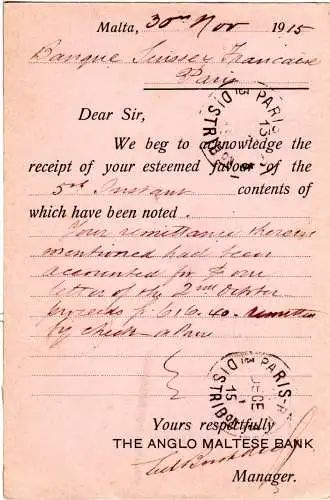 Malta, 30th Nov 1915
Banque Suisse Francaise
Paris
Dear Sir,
We beg to acknowledge the
receipt of your esteemed favour of the
5th Instant contents of
which have been noted.
Your remittance therein
mentioned had been
accounted for p our
letter of the 2nd October
proceeds p. 616.40. remitted
by check a Paris
Yours respectfully
THE ANGLO MALTESE BANK
Manager.
PARIS
DISTRIBON
PARIS
DISTRIBON